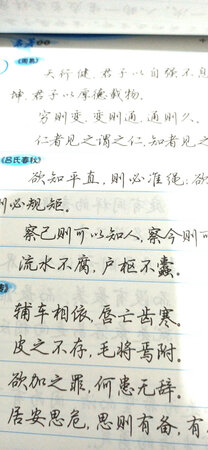 《周易》
天行健,君子以自强不息
坤,君子以厚德载物.
穷则变,变则通,通则久.
仁者见之谓之仁,知者见之
《吕氏春秋》
欲知平直,则必准绳;欲
则必规矩.
察己则可以知人,察今则可
流水不腐,户枢不蠹.
辅车相依,唇亡齿寒.
皮之不存,毛将焉附.
欲加之罪,何患无辞.
居安思危,思则有备,有